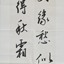 丈緣愁似
得秋霜